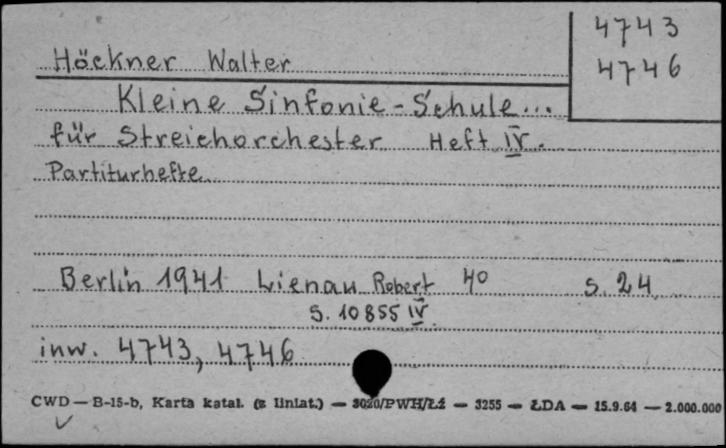 4743
4746
Höckner Walter
Kleine Sinfonie-Schule...
für Streichorchester Heft IV.
Partiturhefte
Berlin 1941 Lienau Robert 4° s. 24
S. 10855 IV
inw. 4743, 4746
CWD — B-15-b, Karta katal. (z liniat.) — 3020/PWH/Łź — 3255 — ŁDA — 15.9.64 — 2.000.000